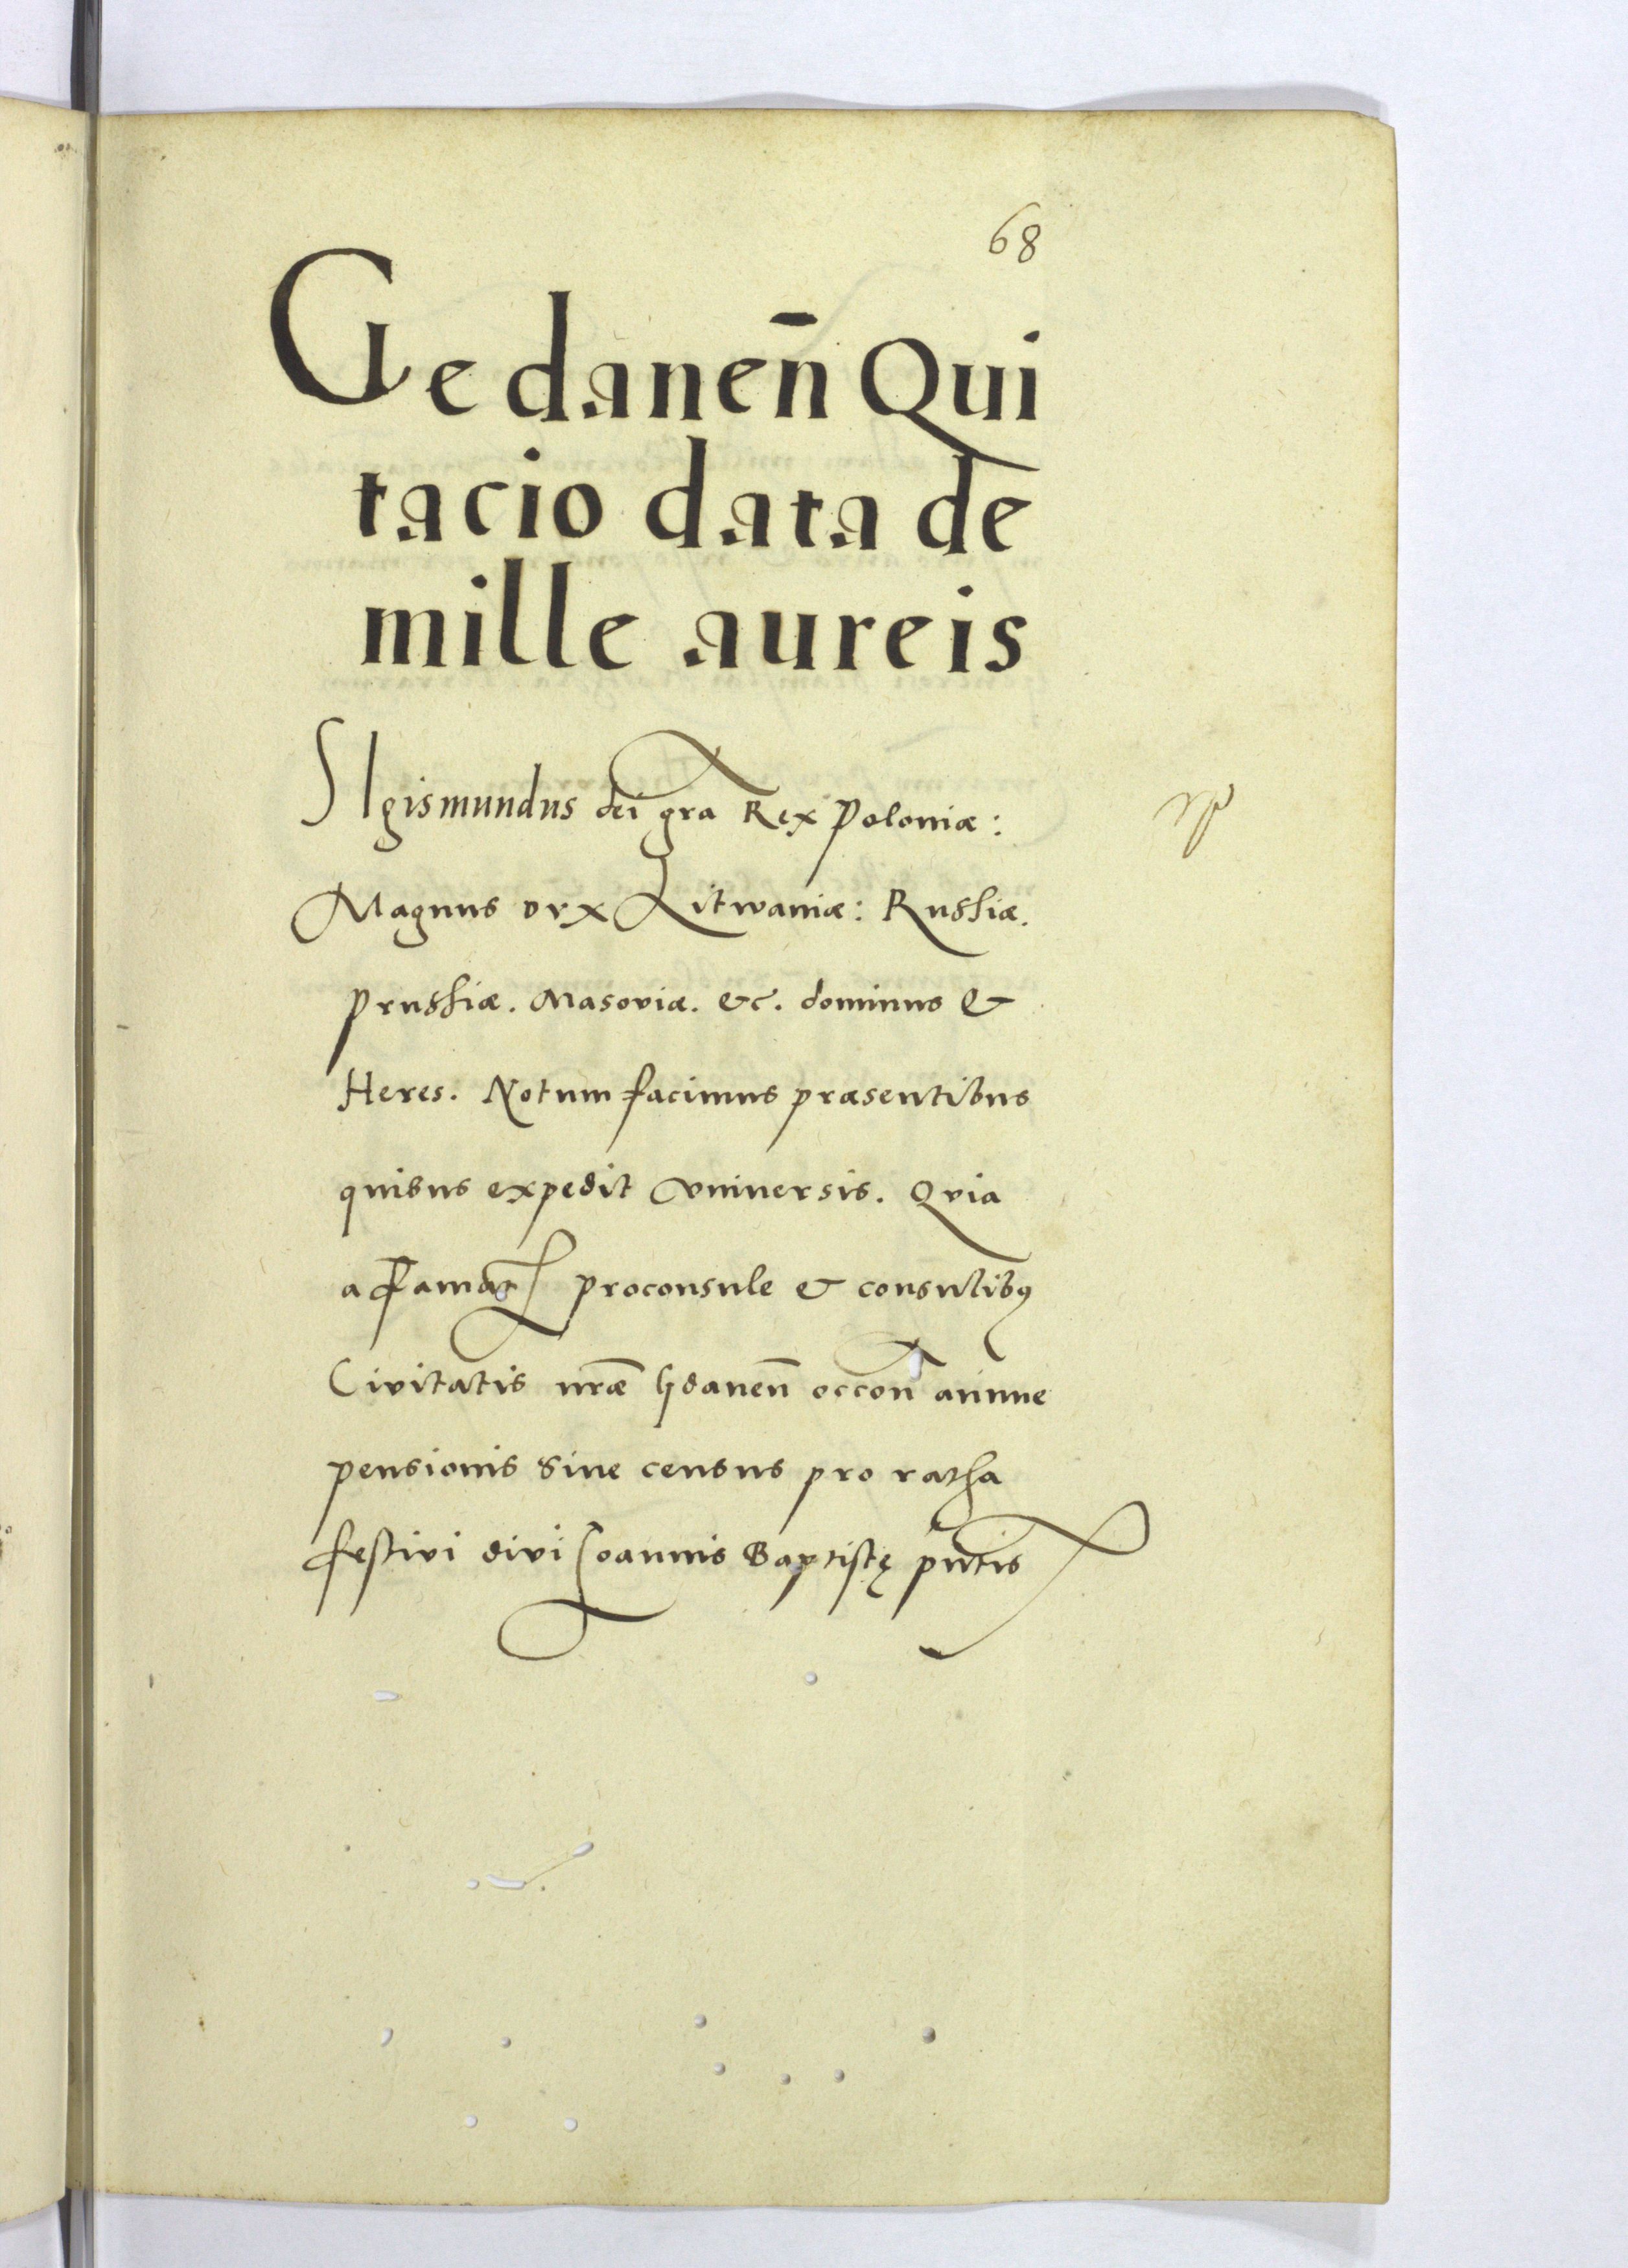 68
Gedaneñ Qui
tacio data de
mille aureis
SIgismundus dei gra Rex Poloniæ:
Magnus Dvx Litwaniæ: Russiæ.
Prussiæ. Masoviæ. &c. dominus &
Heres. Notum facimus præsentibus
quibus expedit vniuersis. Qvia
a famat proconsule & consulibꝰ
Civitatis nræ Gdaneñ occoñ annue
pensionis siue census pro ratha
festivi divi Ioannis Baptistę pñtis